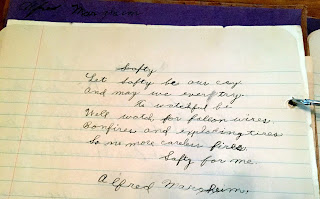 Alfred
Safty
Let safty be our cry
And may we ever try
To watchful be
We'll watch for fallen wires
Bonfires and exploding tires
So no more careless fires
Safty for me.
Alfred Marsheim.